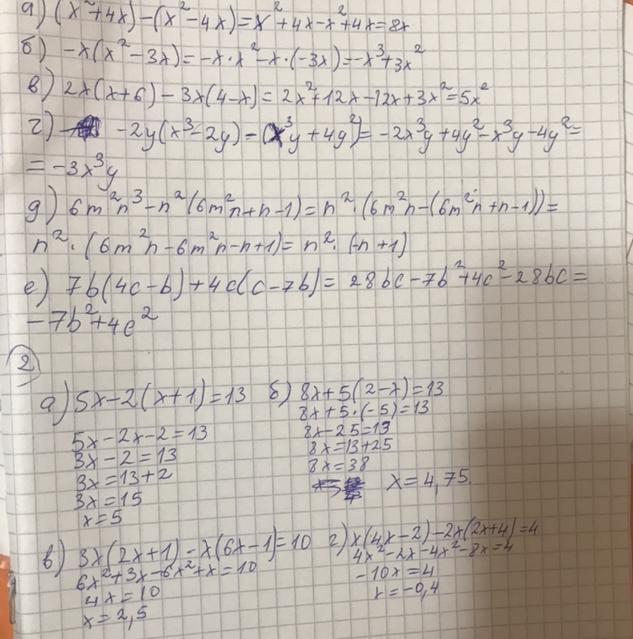 а) (x²+4x)-(x²-4x)=x²+4x-x²+4x=8x
б) -x(x²-3x)=-x·x²-x·(-3x)=-x³+3x²
в) 2x(x+6)-3x(4-x)=2x²+12x-12x+3x²=5x²
г) -2y(x³-2y)-(x³y+4y²)=-2x³y+4y²-x³y-4y²=
=-3x³y
д) 6m²n³-n²(6m²n+n-1)=n²·(6m²n-(6m²n+n-1))=
n²·(6m²n-6m²n-n+1)=n²·(-n+1)
е) 7b(4c-b)+4c(c-7b)=28bc-7b²+4c²-28bc=
-7b²+4c²
2
а) 5x-2(x+1)=13
5x-2x-2=13
3x-2=13
3x=13+2
3x=15
x=5
б) 8x+5(2-x)=13
8x+5·(-5)=13
8x-25=13
8x=13+25
8x=38
x=4,75
в) 3x(2x+1)-x(6x-1)=10
6x²+3x-6x²+x=10
4x=10
x=2,5
г) x(4x-2)-2x(2x+4)=4
4x²-2x-4x²-8x=4
-10x=4
x=-0,4